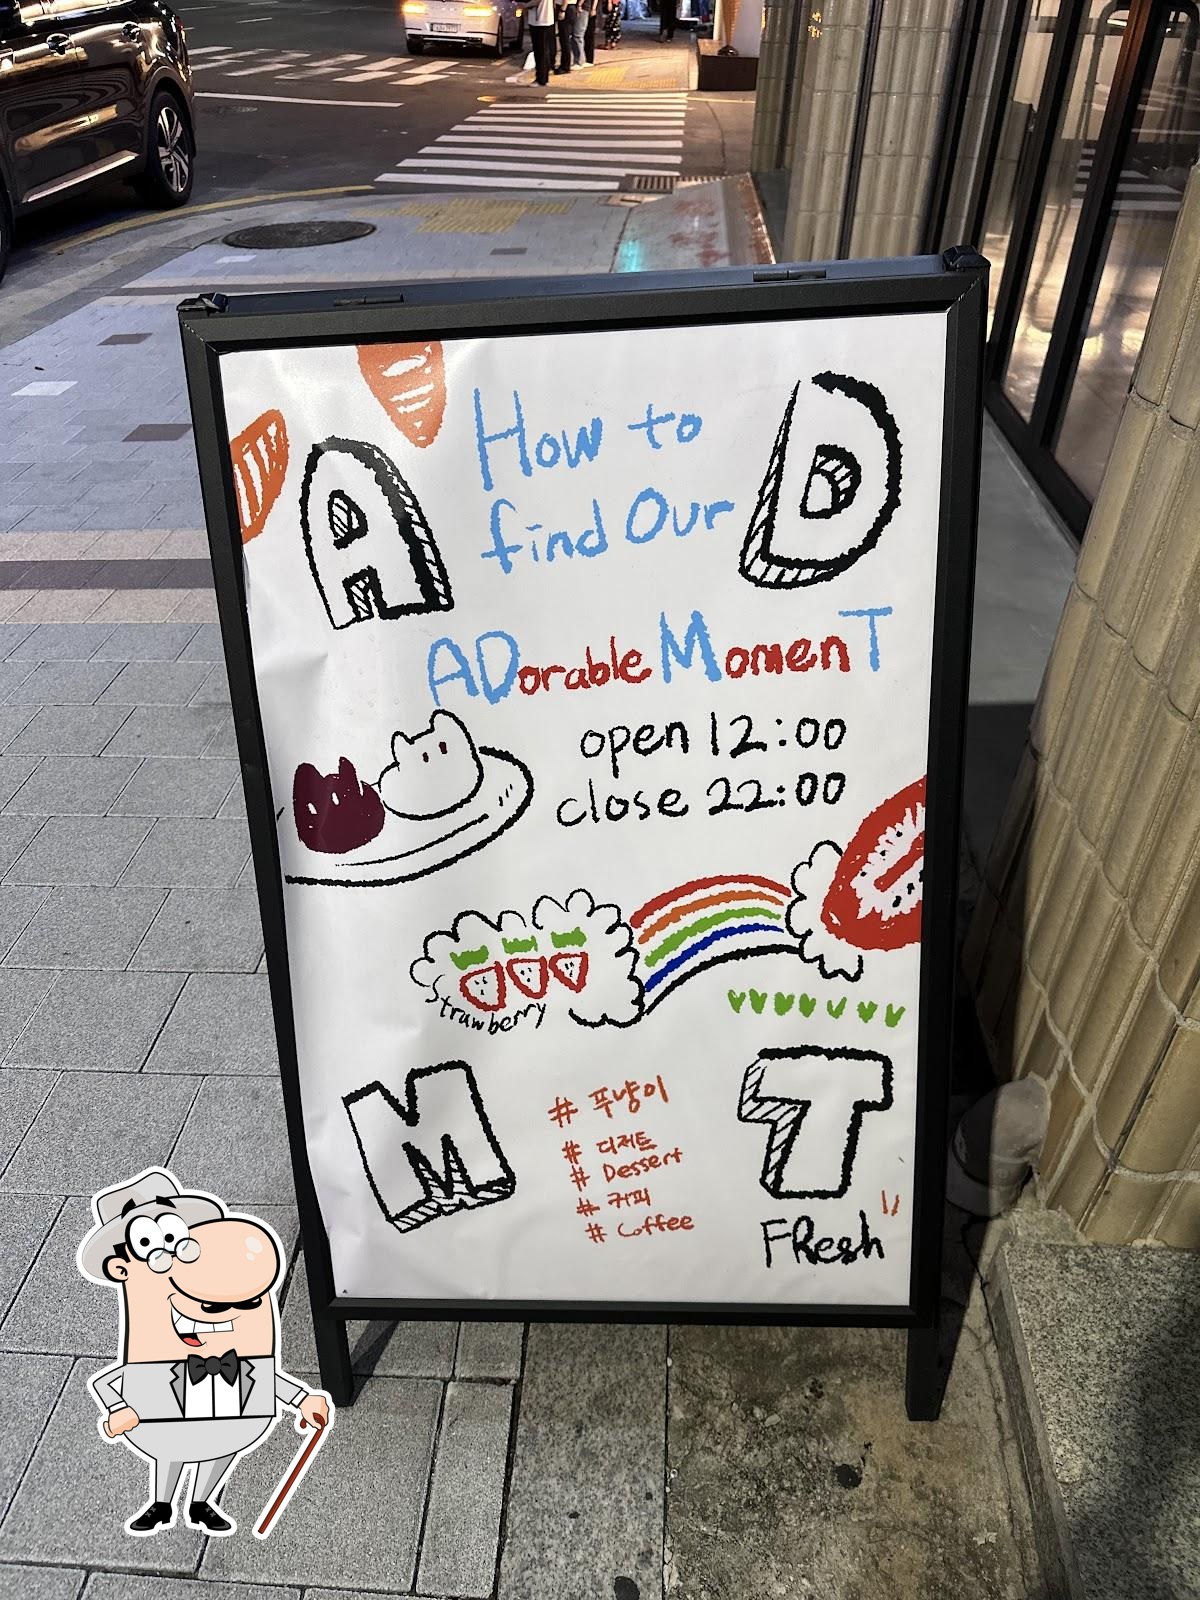 A
How to
find Our
D
ADorable MomenT
open 12:00
close 22:00
Strawberry
M
T
# 푸냥이
# 디저트
# Dessert
# 커피
# Coffee
FResh